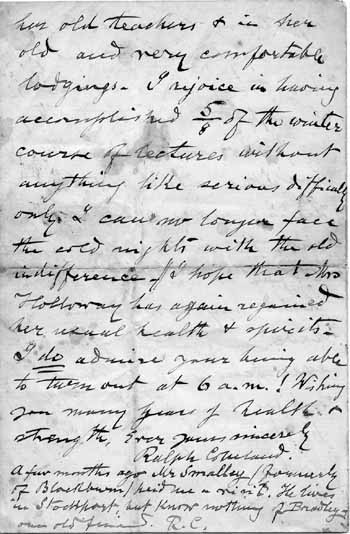 her old teachers & in her
old and very comfortable
lodgings. I rejoice in having
accomplished 5/9 of the winter
course of lectures without
anything like serious difficulty
only I can no longer face
the cold nights with the old
indifference. I hope that Mrs
Holloway has again regained
her usual health & spirits.
I do admire your being able
to turn out at 6 a.m.! Wishing
you many years of health &
strength, Ever yours sincerely
Ralph Copeland.
A few months ago Mr Smalley (formerly
of Blackburn) paid me a visit. He lives
in Stockport, but know nothing of Bradley
our old friend. R.C.